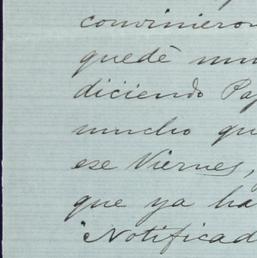 convinieron
quedè mu
diciendo Pap
mucho qu
ese Viernes,
que ya ha
"Notificad